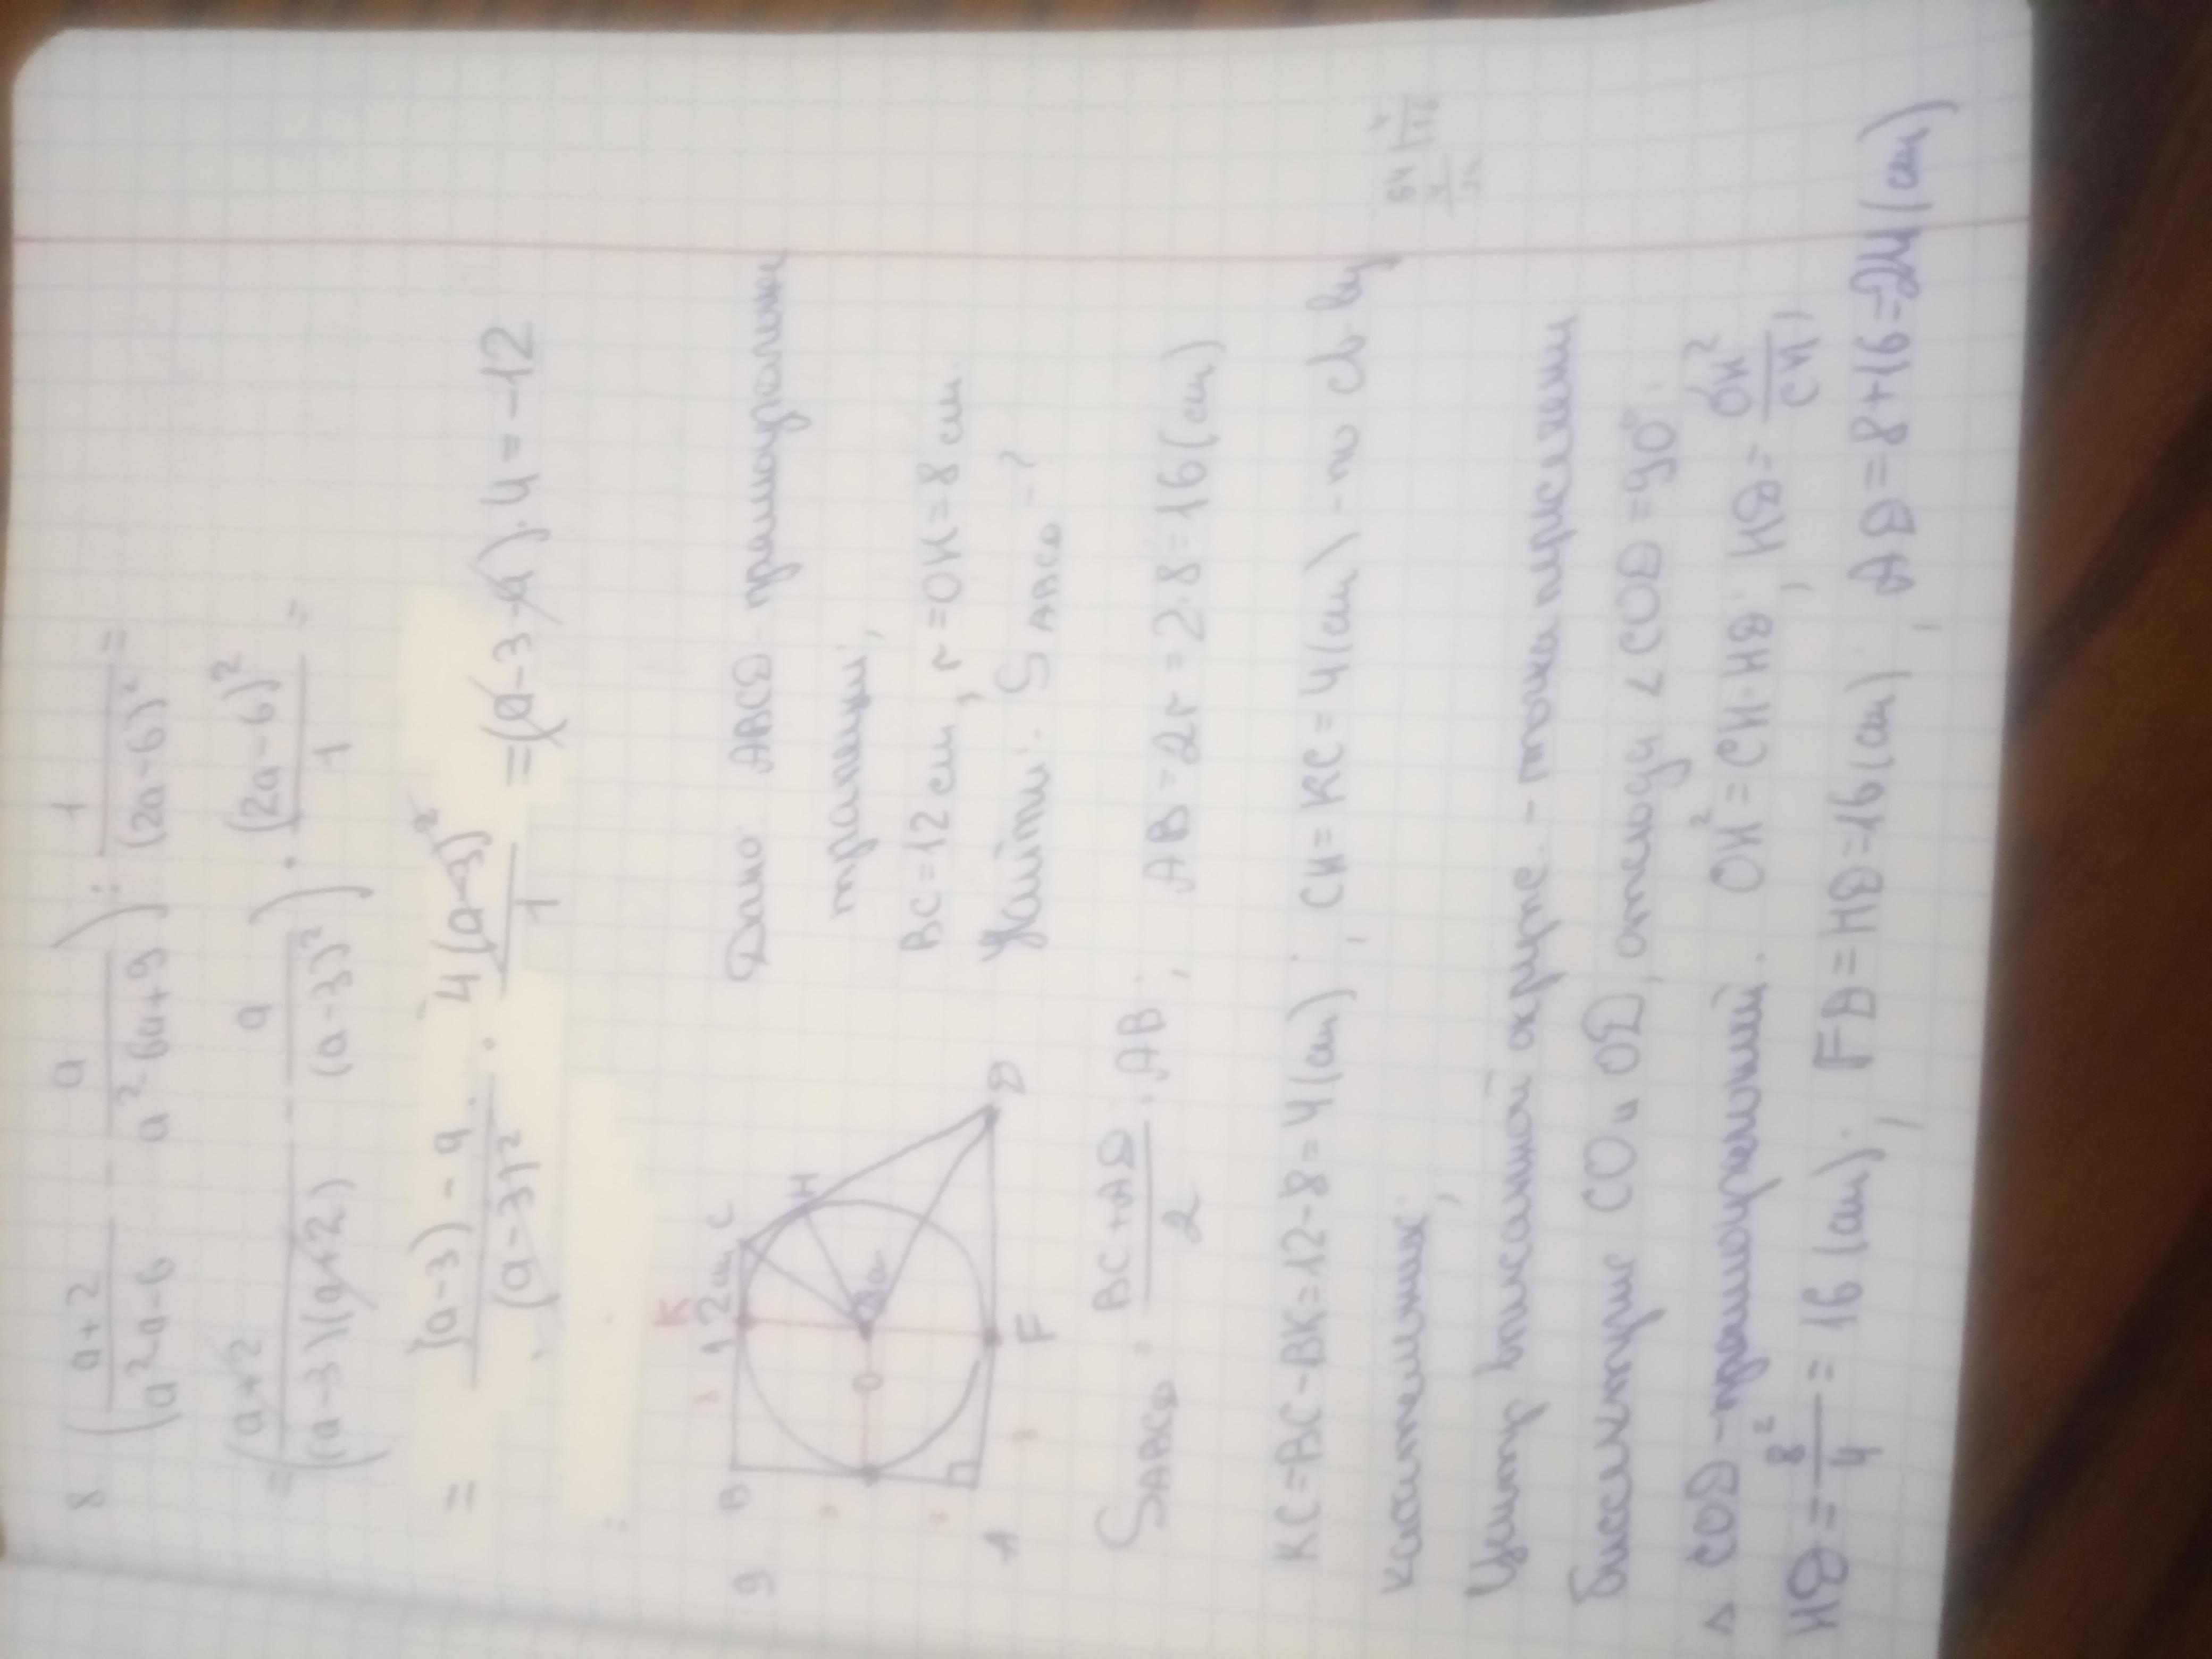 8. ((a+2)/(a²-a-6) - a/(a²-6a+9)) : 1/(2a-6)² =
= ((a+2)/((a-3)(a+2)) - a/(a-3)²) · (2a-6)²/1 =
= ((a-3)-a)/(a-3)² · 4(a-3)²/1 = (a-3-a)·4 = -12
9.
B 12см C
K
H
O
8см
A F D
Дано: ABCD - прямоугольная
трапеция,
BC = 12 см, r = OH = 8 см.
Найти: S ABCD - ?
S ABCD = (BC+AD)/2 · AB; AB = 2r = 2·8 = 16 (см)
KC = BC - BK = 12 - 8 = 4 (см); CH = KC = 4 (см) - по св-ву
касательных;
Центр вписанной окружн. - точка пересечения
биссектрис CO и OD, отсюда ∠COD = 90°.
△ COD - прямоугольный. OH² = CH·HD; HD = OH²/CH;
HD = 8²/4 = 16 (см); FD = HD = 16 (см); AD = 8+16 = 24 (см)